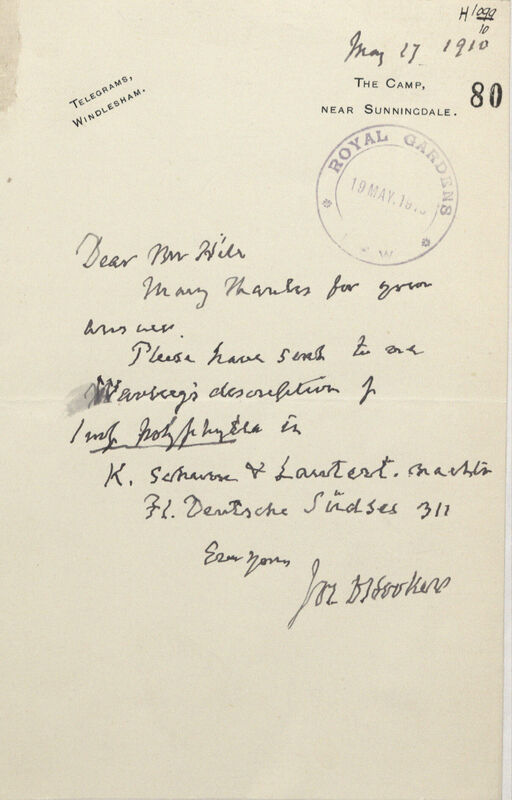 H/1099/10
May 17 1910
TELEGRAMS,
WINDLESHAM.
THE CAMP,
NEAR SUNNINGDALE.
80
ROYAL GARDENS
19 MAY. 1910
KEW
Dear Mr Hill
Many thanks for your
answer.
Please have sent to me
Warburg's description of
Imp. polyphylla in
K. Schum & Lautert. nachtr
Fl. Deutsche Südsee 311
Ever yours
Jos D Hooker